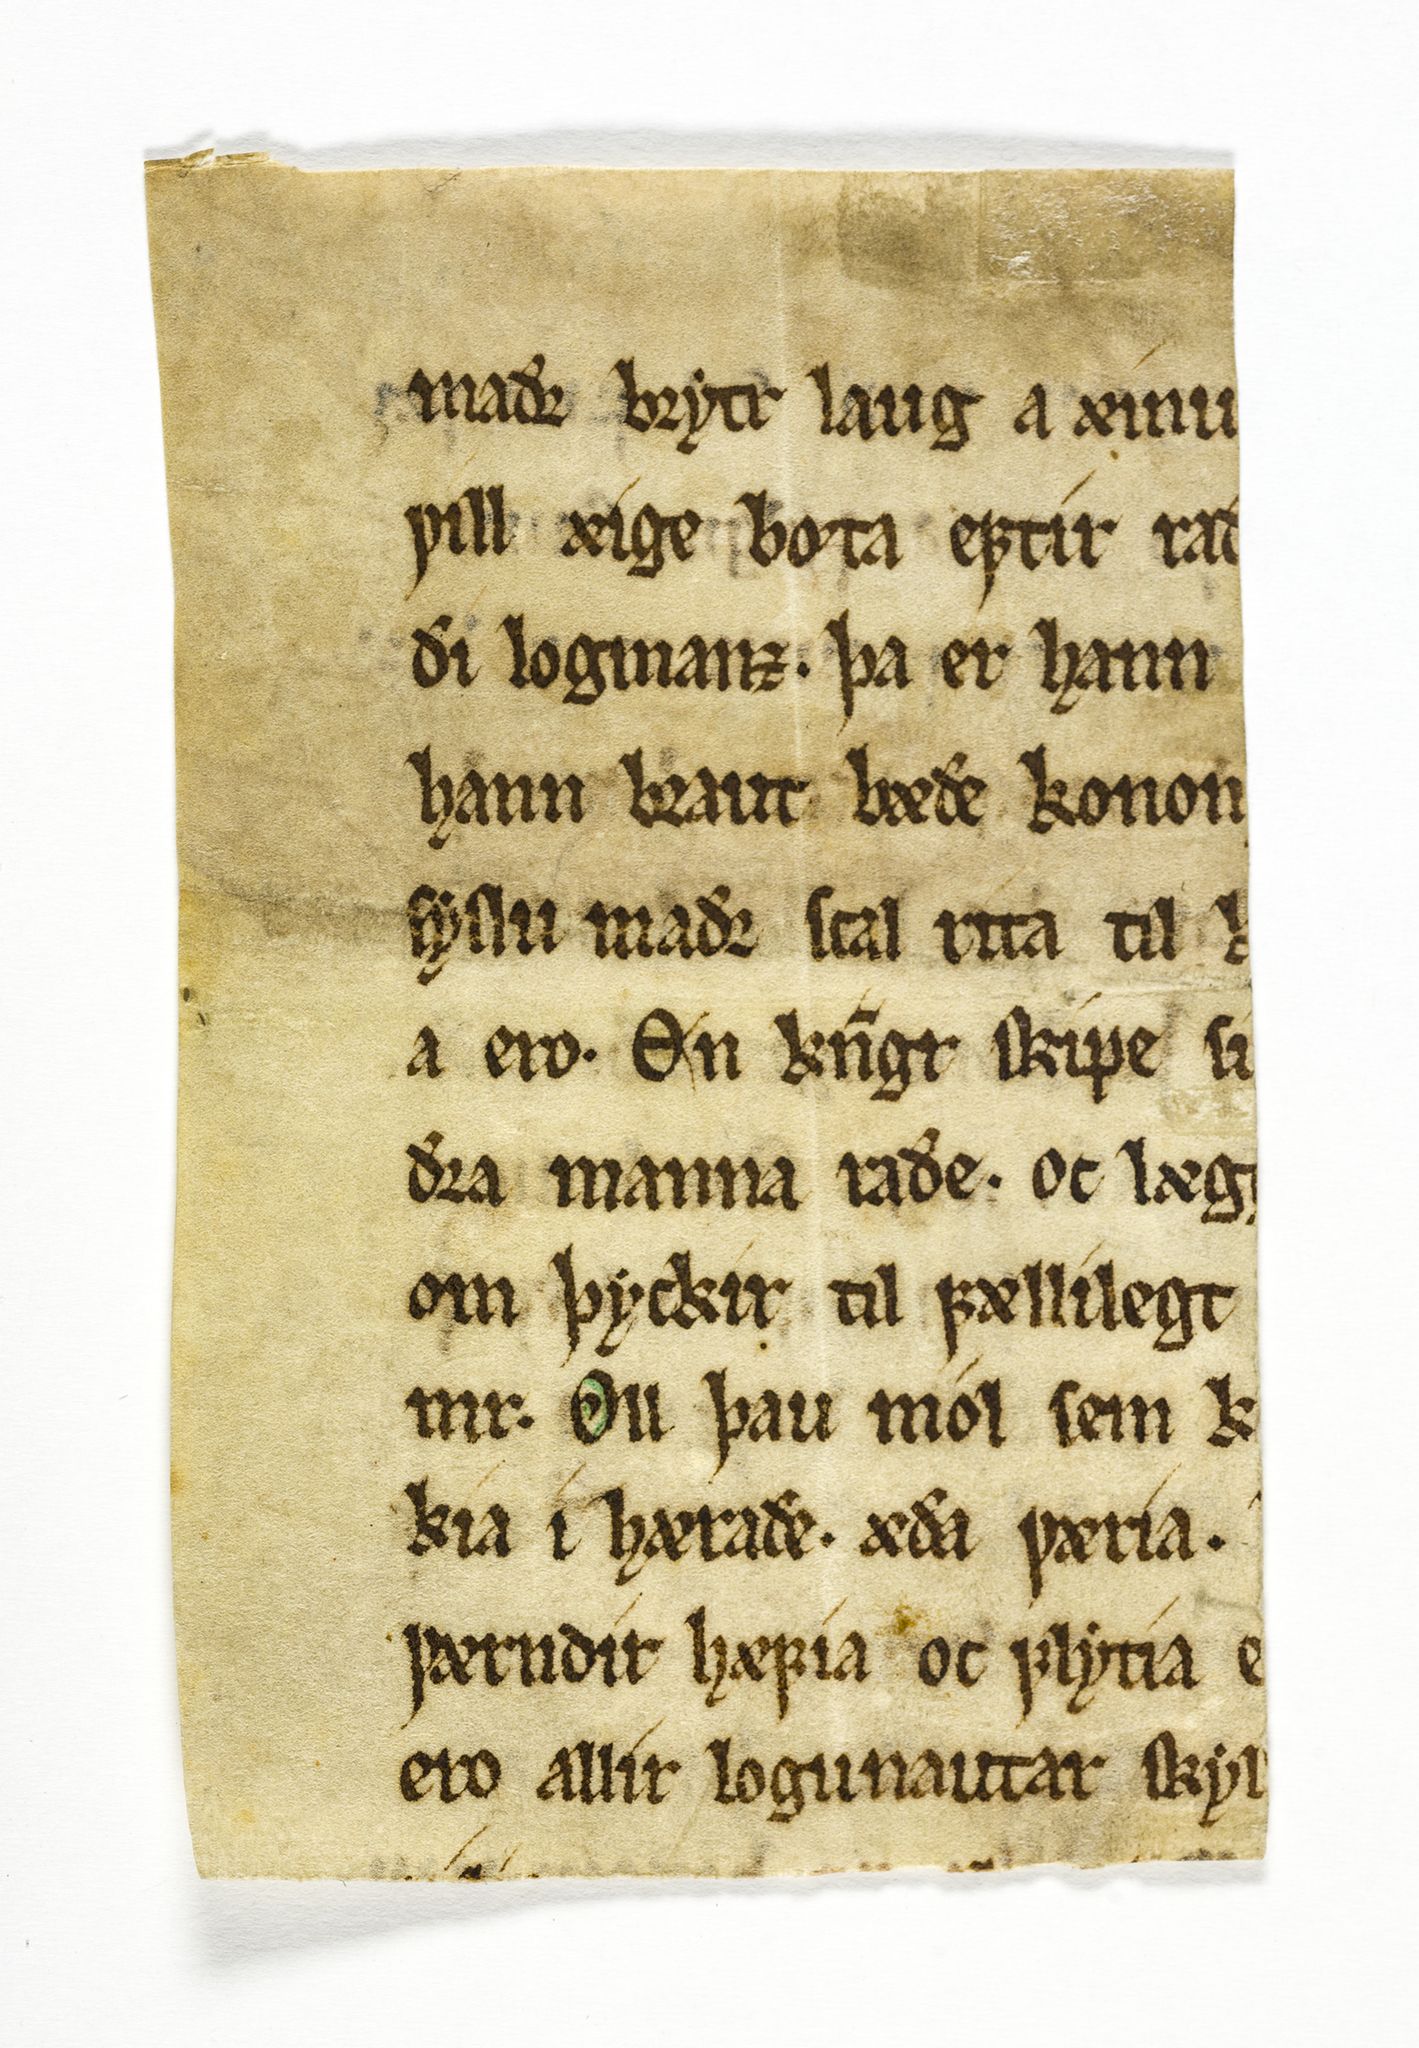 maðr brytr laug a æinu
vill æige bota eptir rað
ði logmanz. þa er hann
hann braut bæðe konon
syslu maðr scal rita til k
a ero. En kn̅gr skipe si
ðra manna raðe. oc lægg
om þyckir til fællilegt
mr. Oll þau mól sem k
kia i hæraðe. æða væria.
værndir hæfia oc flytia e
ero allir logunautar skyl